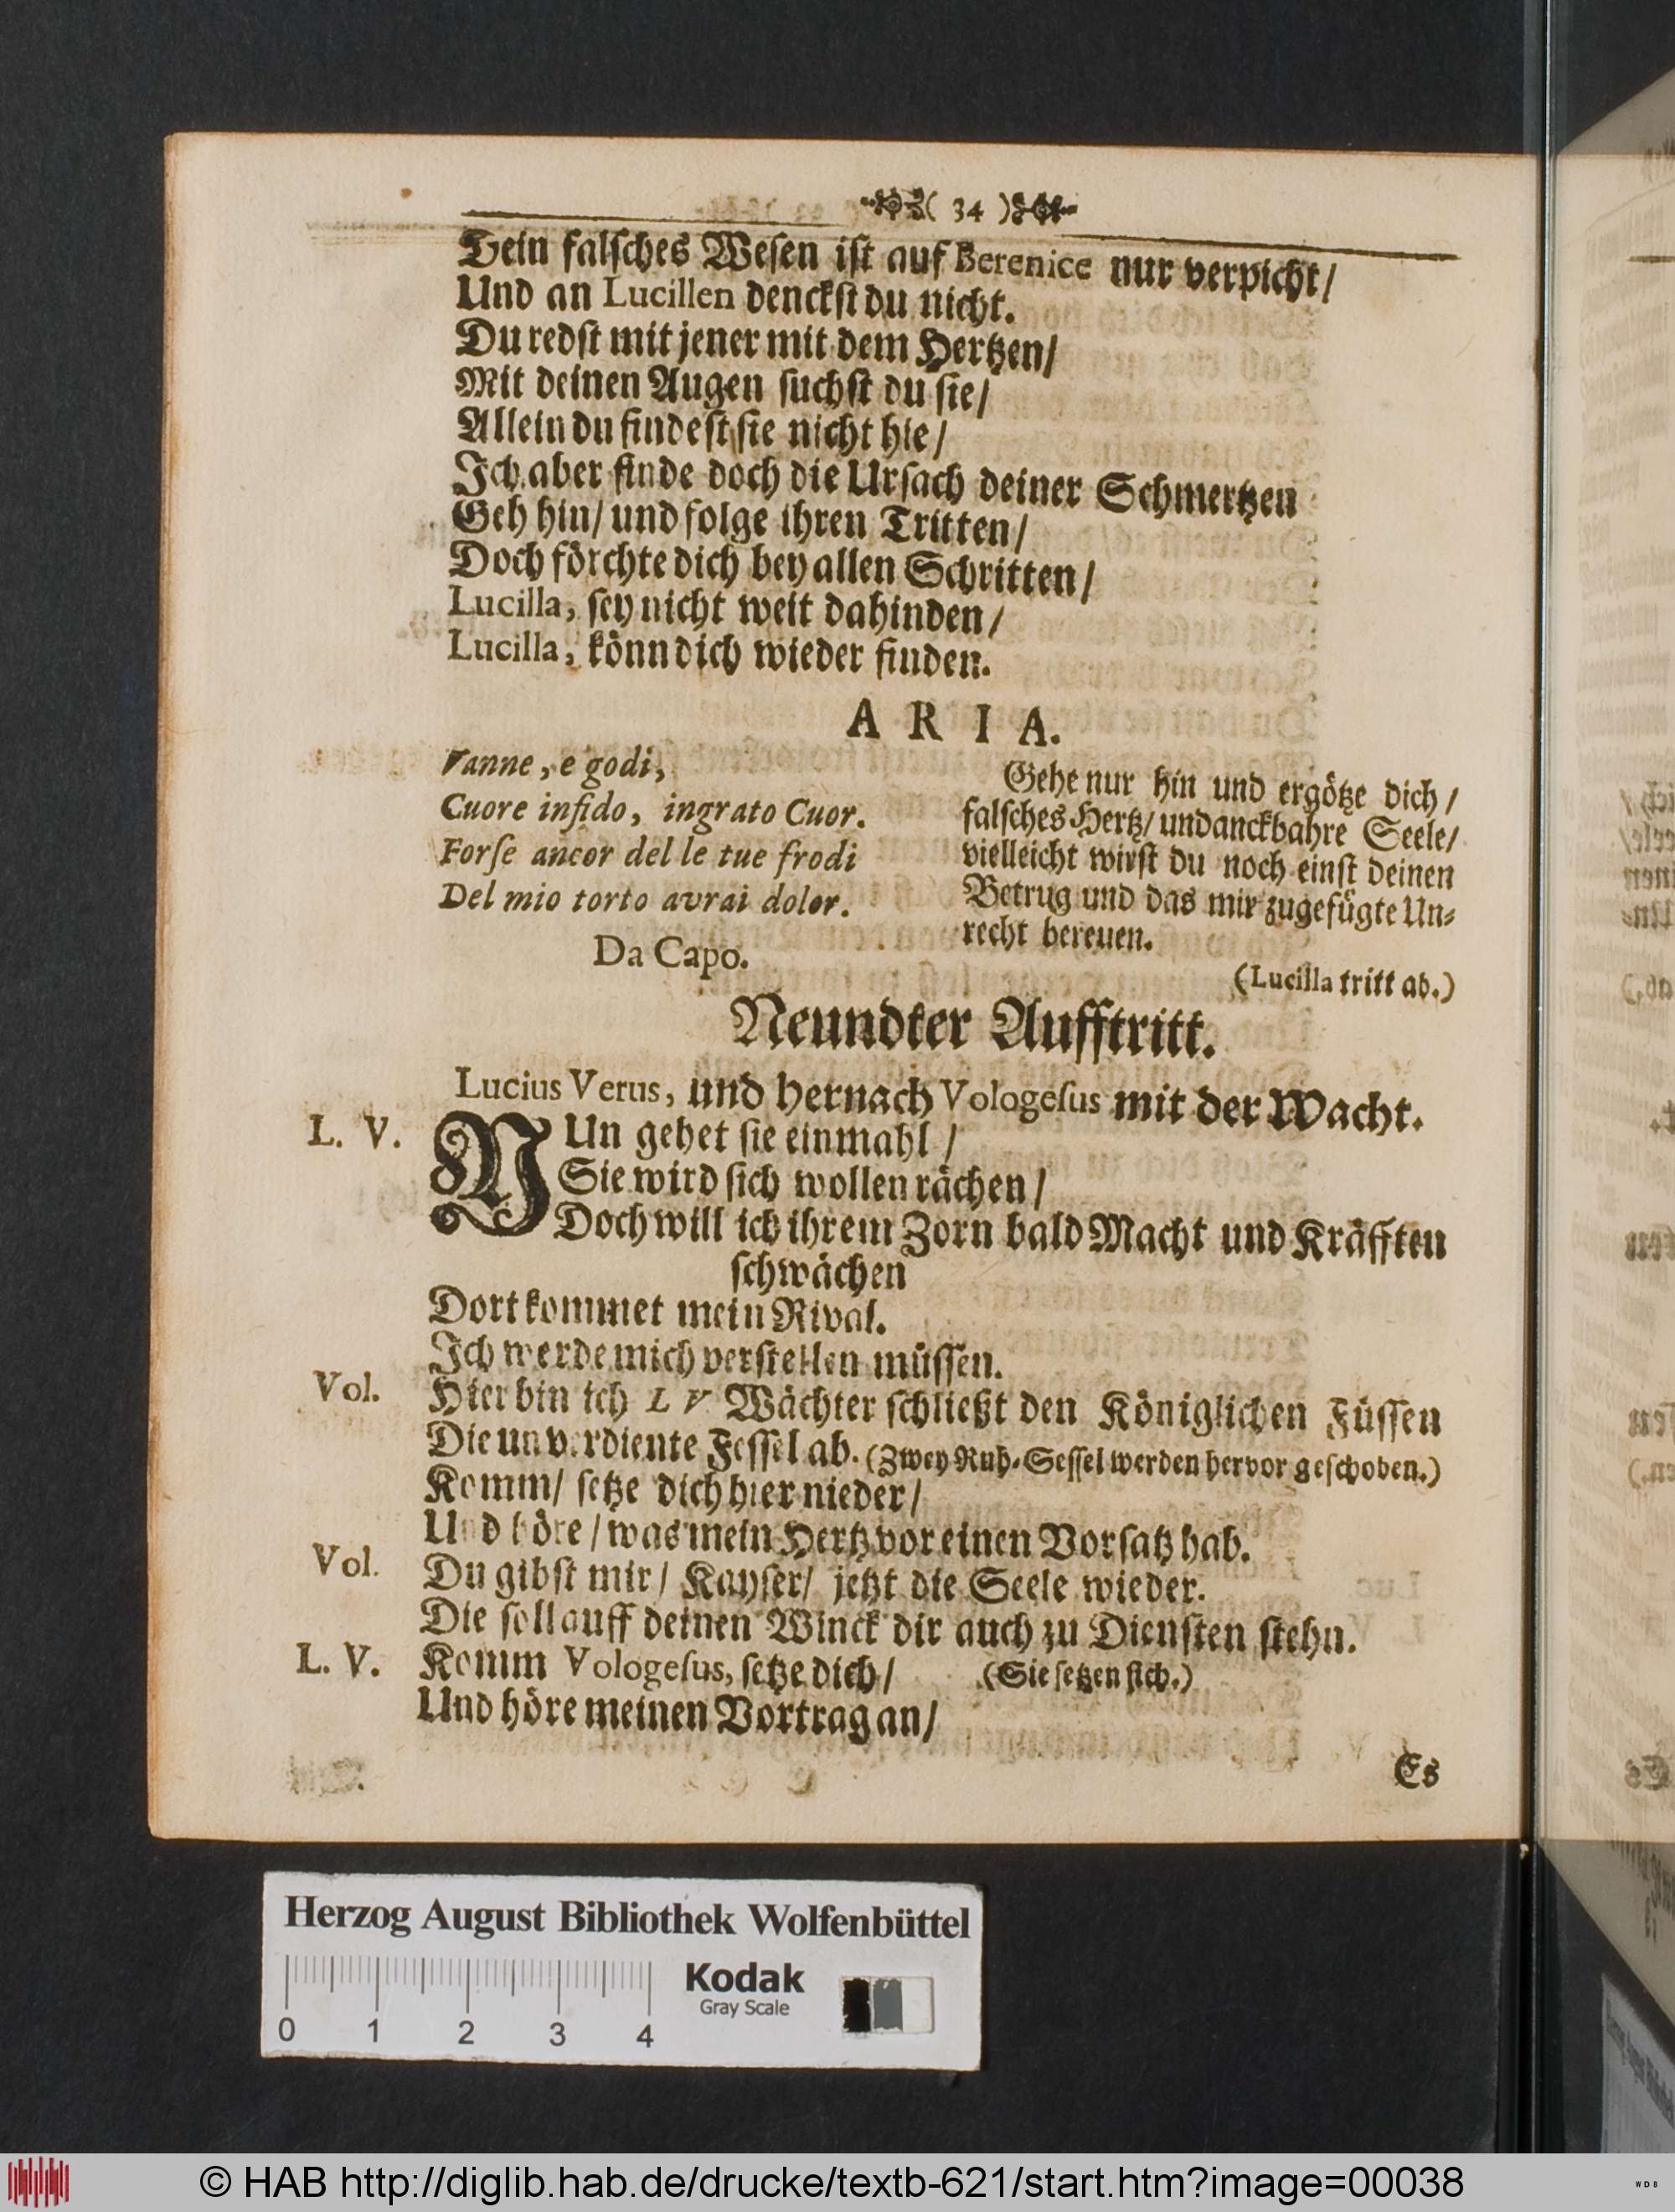 ( 34 )
Dein falsches Wesen ist auf Berenice nur verpicht/
Und an Lucillen denckst du nicht.
Du redst mit jener mit dem Hertzen/
Mit deinen Augen suchst du sie/
Allein du findest sie nicht hie/
Ich aber finde doch die Ursach deiner Schmertzen
Geh hin/ und folge ihren Tritten/
Doch förchte dich bey allen Schritten/
Lucilla, sey nicht weit dahinden/
Lucilla, könn dich wieder finden.
ARIA.
Vanne, e godi,
Cuore infido, ingrato Cuor.
Forse ancor del le tue frodi
Del mio torto avrai dolor.
Da Capo.
Gehe nur hin und ergötze dich/
falsches Hertz/ undanckbahre Seele/
vielleicht wirst du noch einst deinen
Betrug und das mir zugefügte Un-
recht bereuen.
(Lucilla tritt ab.)
Neundter Aufftritt.
Lucius Verus, und hernach Vologesus mit der Wacht.
L. V. NUn gehet sie einmahl/
Sie wird sich wollen rächen/
Doch will ich ihrem Zorn bald Macht und Kräfften
schwächen
Dort kommet mein Rival.
Ich werde mich verstellen müssen.
Vol. Hier bin ich L V Wächter schließt den Königlichen Füssen
Die unverdiente Fessel ab. (Zwey Ruh-Sessel werden hervor geschoben.)
Komm/ setze dich hier nieder/
Und höre/ was mein Hertz vor einen Vorsatz hab.
Vol. Du gibst mir/ Kayser/ jetzt die Seele wieder.
Die soll auff deinen Winck dir auch zu Diensten stehn.
L. V. Komm Vologesus, setze dich/ (Sie setzen sich.)
Und höre meinen Vortrag an/
Es
Herzog August Bibliothek Wolfenbüttel
Kodak
Gray Scale
0 1 2 3 4
© HAB http://diglib.hab.de/drucke/textb-621/start.htm?image=00038
WDB